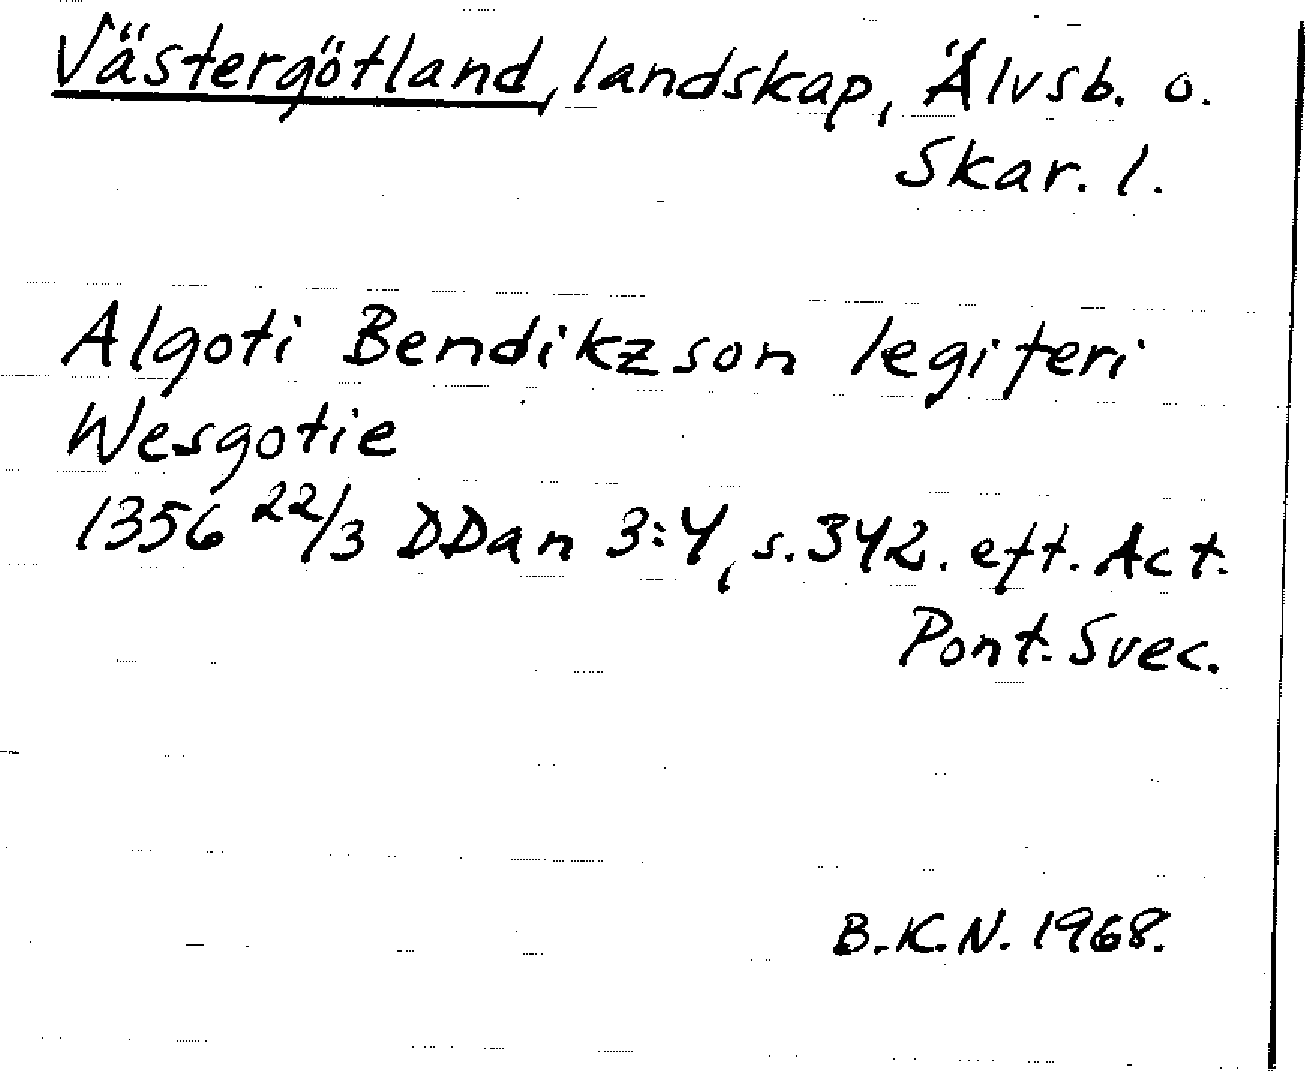 Västergötland, landskap, Älvsb. o.
Skar. l.
Algoti Bendikzson legiferi
Wesgotie
1356 22/3 DDan 3:4, s. 342. eft. Act.
Pont. Svec.
B.K.N. 1968.